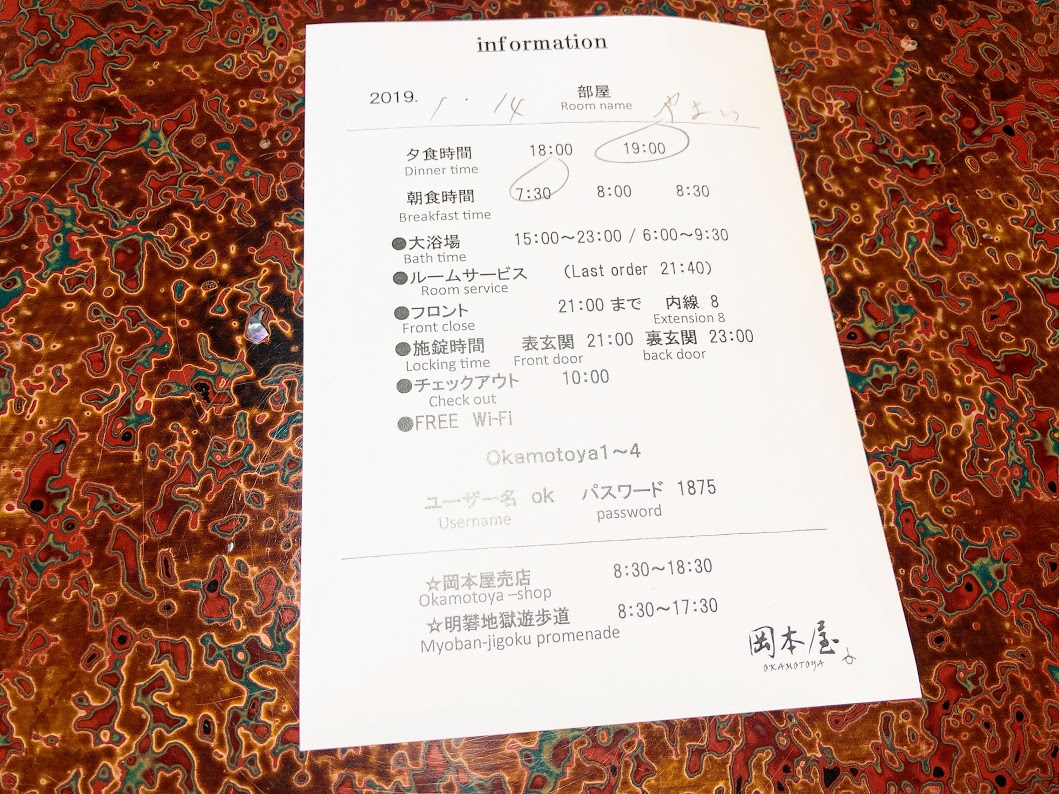 information
2019. 1 . 14 部屋
Room name
夕食時間 18:00 19:00
Dinner time
朝食時間 7:30 8:00 8:30
Breakfast time
●大浴場 15:00～23:00 / 6:00～9:30
Bath time
●ルームサービス （Last order 21:40）
Room service
●フロント 21:00 まで 内線 8
Front close Extension 8
●施錠時間 表玄関 21:00 裏玄関 23:00
Locking time Front door back door
●チェックアウト 10:00
Check out
●FREE Wi-Fi
Okamotoya1～4
ユーザー名 ok パスワード 1875
Username password
☆岡本屋売店 8:30～18:30
Okamotoya –shop
☆明礬地獄遊歩道 8:30～17:30
Myoban-jigoku promenade
岡本屋
OKAMOTOYA